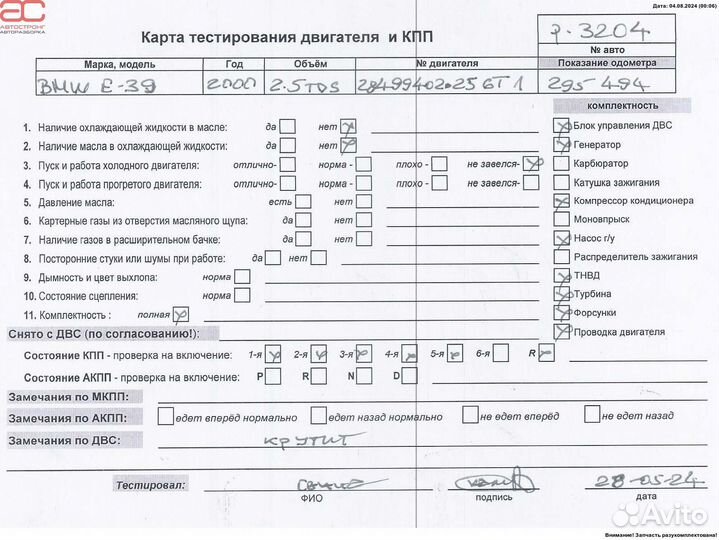 Дата: 04.08.2024 (00:06)
АС
АВТОСТРОНГ
АВТОРАЗБОРКА
Карта тестирования двигателя и КПП
р-3204
№ авто
Марка, модель Год Объём № двигателя Показание одометра
BMW E-39 2000 2.5TDS 295 494
комплектность
1. Наличие охлаждающей жидкости в масле: да нет Блок управления ДВС
2. Наличие масла в охлаждающей жидкости: да нет Генератор
3. Пуск и работа холодного двигателя: отлично- норма - плохо - не завелся- Карбюратор
4. Пуск и работа прогретого двигателя: отлично- норма - плохо - не завелся- Катушка зажигания
5. Давление масла: есть нет Компрессор кондиционера
6. Картерные газы из отверстия масляного щупа: да нет Моновпрыск
7. Наличие газов в расширительном бачке: да нет Насос г/у
8. Посторонние стуки или шумы при работе: да нет Распределитель зажигания
9. Дымность и цвет выхлопа: норма ТНВД
10. Состояние сцепления: норма Турбина
11. Комплектность : полная Форсунки
Снято с ДВС (по согласованию!): Проводка двигателя
Состояние КПП - проверка на включение: 1-я 2-я 3-я 4-я 5-я 6-я R
Состояние АКПП - проверка на включение: P R N D
Замечания по МКПП:
Замечания по АКПП: едет вперёд нормально едет назад нормально не едет вперёд не едет назад
Замечания по ДВС: крутит
Тестировал: 28-05-24
ФИО подпись дата
Avito
Внимание! Запчасть разукомплектована!